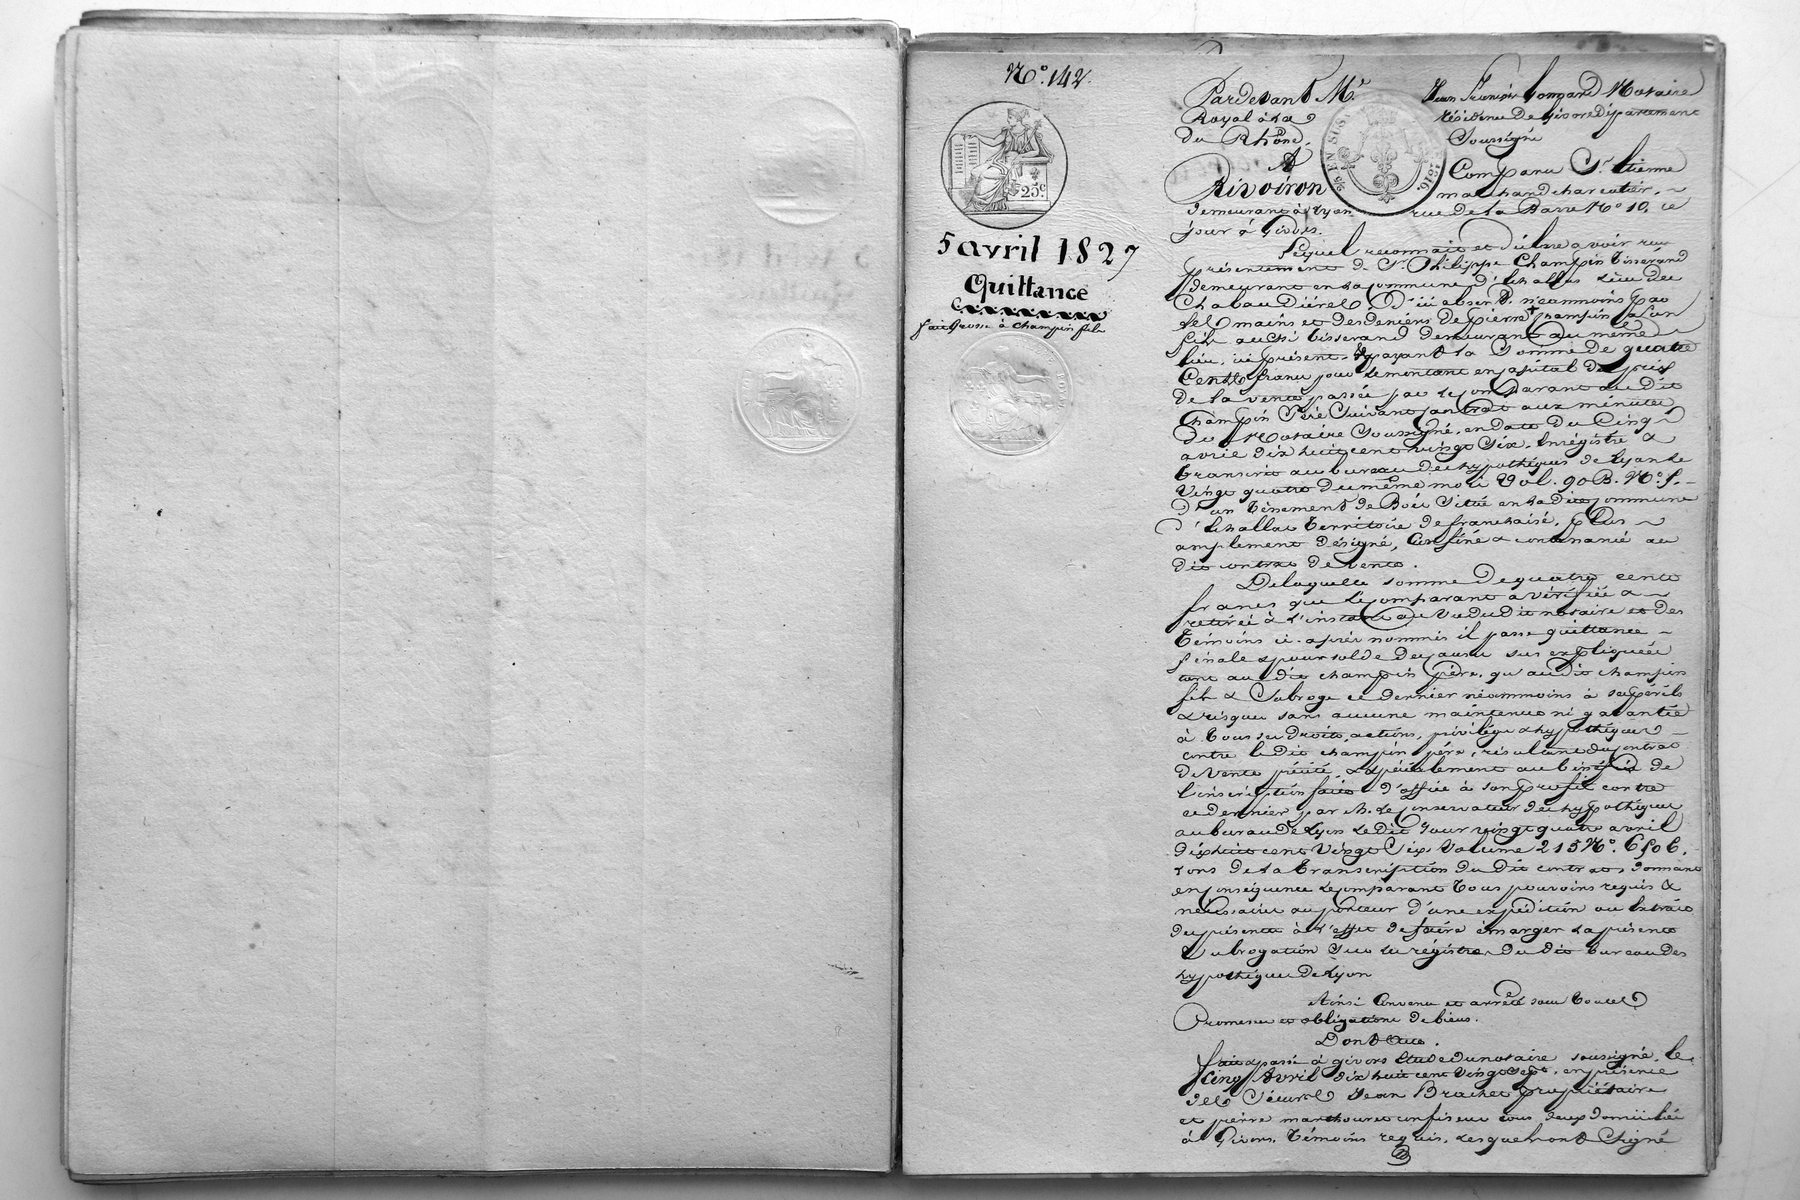 N.° 142.
25.c
5 avril 1827
Quittance
fait grosse à Champin fils
Pardevant M.e Jean François Notaire
Royal à la résidence de Givors département
du Rhône, Soussigné
A Comparu S.r Etienne
Rivoiron marchand charcutier,
demeurant à Lyon rue de la Barre N.° 10, ce
jour à Givors.
Lequel reconnait et déclare avoir reçu
présentement de S.r Philippe Champin Tisserand
demeurant en la commune d'Echallas lieu de
D'ici absent, néammoins par
les mains et des deniers de pierre Champin son
fils aussi tisserand demeurant au même
lieu, ici présent & payant la Somme de quatre
Cents francs pour le montant en capital du prix
de la vente passée par le comparant au dit
Champin Père Suivant contrat aux minutes
du Notaire Soussigné, en date du Cinq
avril dix huit cent vingt Six, Enrégistré &
transcrit au bureau des hypothèques de Lyon le
Vingt quatre du même mois Vol. 90 B. N.°
d'un Tènement de Bois Situé en la dite commune
d'Echallas territoire de plus
amplement désigné, Confiné & contenancié au
dit contrat de vente.
De laquelle somme de quatre cents
francs que le comparant a vérifiée &
retirée à l'instant au vu du dit notaire et des
témoins ci-après nommés il passe quittance
finale & pour solde des causes sus expliquées
tant au dit champin père, qu'au dit champin
fils & Subroge ce dernier néammoins à ses périls
& risques sans aucune maintenue ni garantie
à tous ses droits, actions, privilége & hypothèques
contre le dit champin père, résultant du contrat
de vente précité, & spécialement au bénéfice de
l'inscription faite d'office à son profit contre
ce dernier par M. le conservateur des hypothèques
au bureau de Lyon le dit jour vingt quatre avril
dix huit cent Vingt Six Volume 215 N.°
lors de la transcription du dit contrat, donnant
en conséquence le comparant tous pouvoirs requis &
nécessaires au porteur d'une expédition ou Extrait
des présentes à l'effet de faire émarger la présente
Subrogation Sur les régistres du dit bureau des
hypothèques de Lyon
Ainsi Convenu et arrêté sous toutes
Promesses et obligations de biens.
Dont Acte.
fait & passé à givors étude du notaire soussigné, le
cinq Avril dix huit cent vingt sept, en présence
des Sieurs Jean Brachet propriétaire
et pierre confiseur tous deux domiciliés
à Givors, témoins requis, lesquels ont Signé